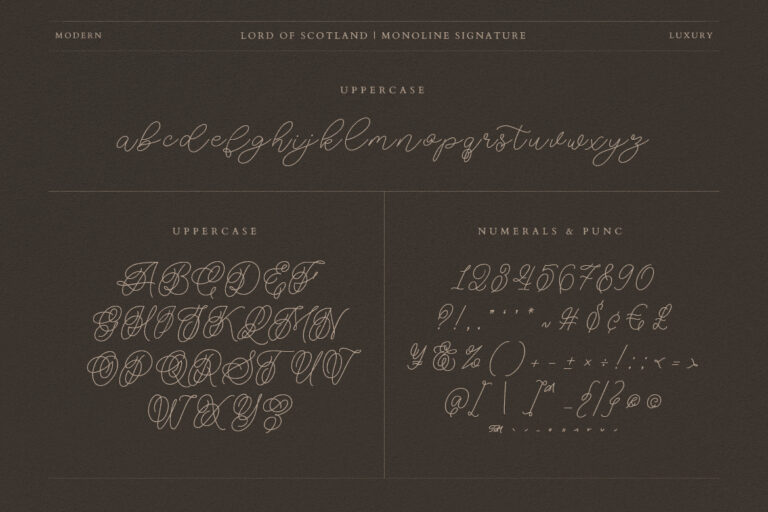 MODERN
LORD OF SCOTLAND | MONOLINE SIGNATURE
LUXURY
UPPERCASE
abcdefghijklmnopqrstuvwxyz
UPPERCASE
ABCDEF
GHIJKLMN
OPQRSTUV
WXYZ
NUMERALS & PUNC
1234567890
?!,."‘’*~#$¢€£
¥&%()+-±×÷!;:<=>
@[\]_{/}©®